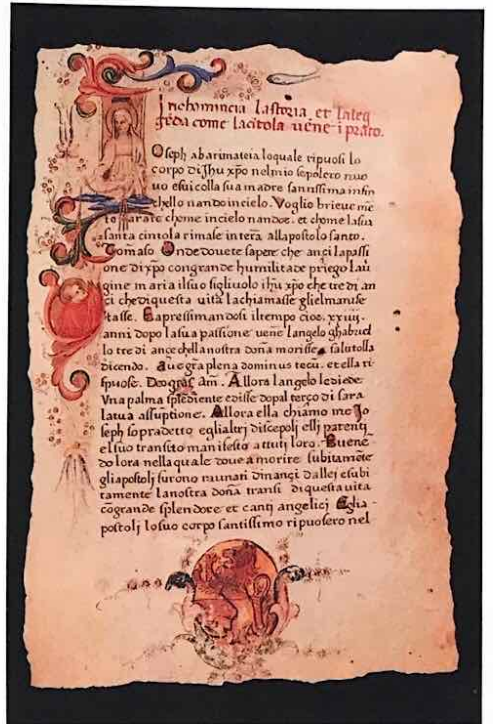 Inchomincia lastoria, et laleg
gieda come lacitola vene i prato.
Oseph abarimateia loquale ripuosi lo
corpo di Jhu xpo nelmio sepolcro nuo
vo esui colla sua madre santissima insin
chello nando incielo. Voglio brieve me
te narare chome incielo nandoe. et chome lasua
santa cintola rimase intera allapostolo santo.
Tomaso Onde dovete sapere che anci lapassi
one dixpo congrande humilitade priego lau
gine maria ilsuo figliuolo ihu xpo che tre di an
ci chediquesta uita lachiamasse glielmanife
stasse. Eapressimandosi iltempo cioe. xxiiij.
anni dopo lasua passione vene langelo ghabriel
lo tre di ance chellanostra dona morisse, salutolla
dicendo. Aue gra plena dominus tecu. et ella ri
spuose. Deo gras Am. Allora langelo lediede
Vna palma splediente edisse dopal terço di sara
latua assuptione. Allora ella chiamo me Jo
seph sopradetto eglialtri discepoli elli parenti
elsuo transito manifesto attuti loro. Vuene
do lora nellaquale dovea morire subitamete
gliapostoli furono raunati dinançi dallei esubi
tamente lanostra dona transi diquesta uita
cograndе splendore et canti angelici Eglia-
postoli losuo corpo santissimo ripuosero nel